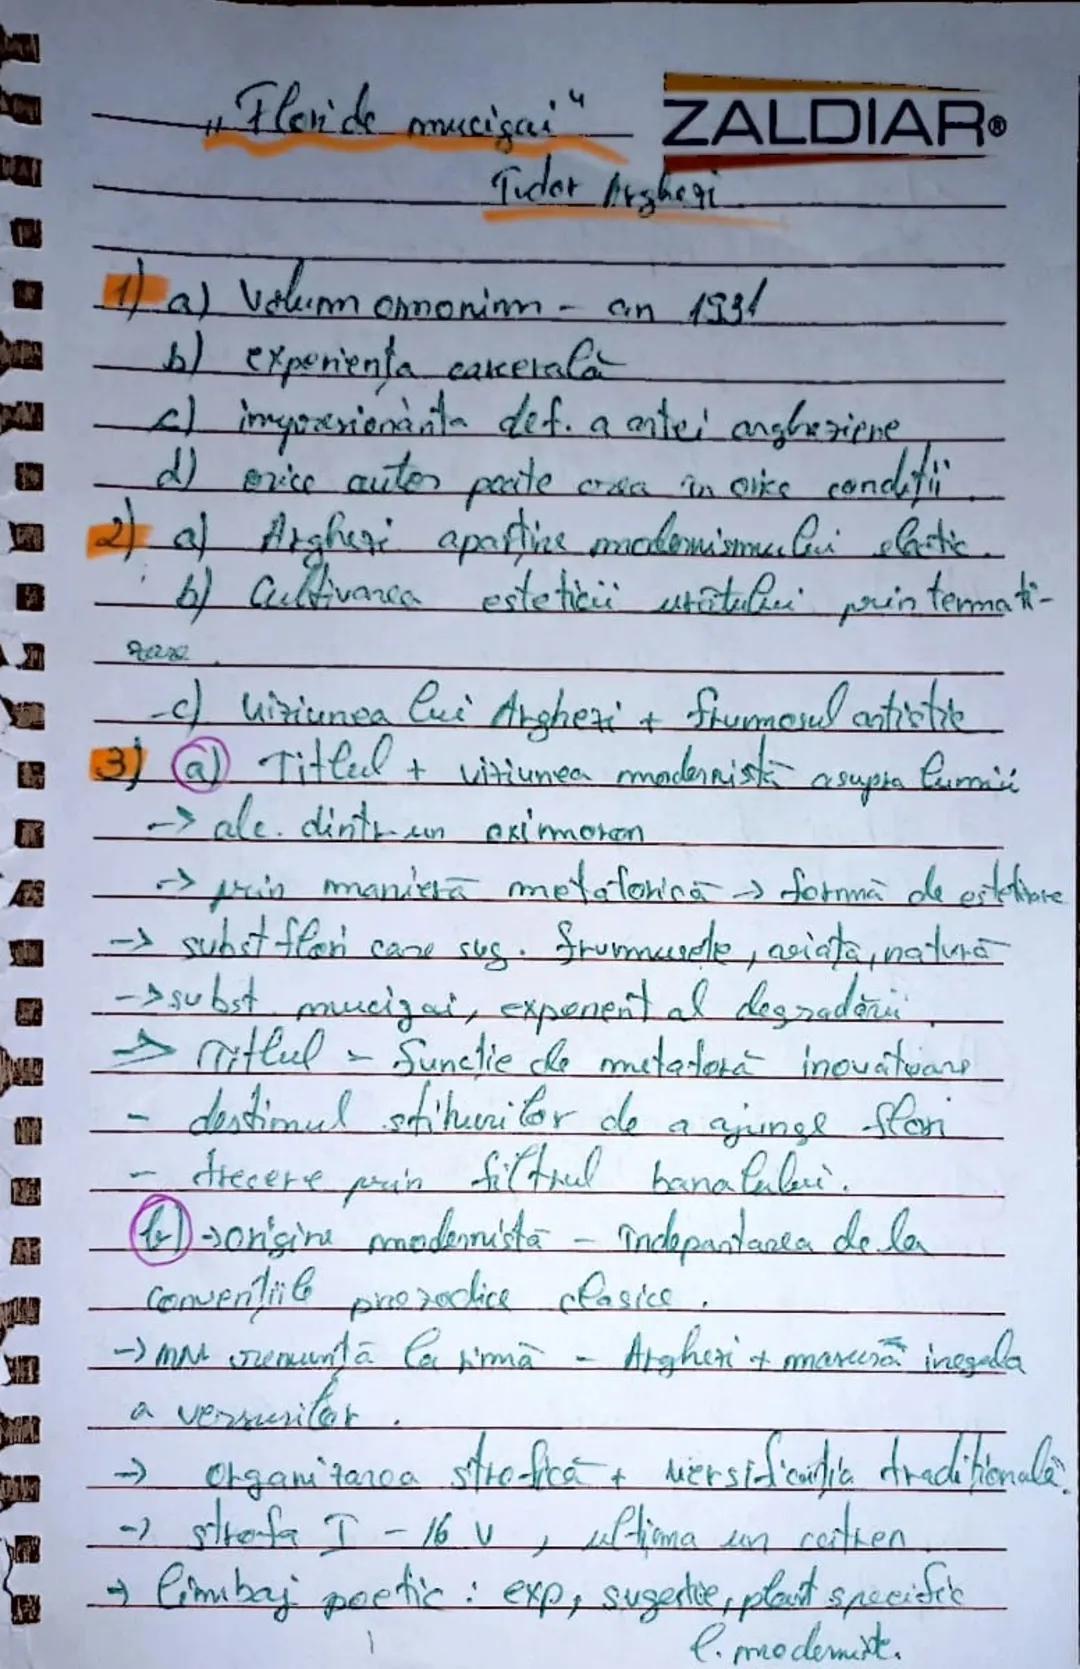 „Flori de mucigai"
ZALDIAR®
Tudor Arghezi
1) a) Volum omonim - an 1931
b) experiența carcerală
c) impresionanta def. a artei argheziene
d) orice autor poate crea în orice condiții
2) a) Arghezi aparține modernismului clasic.
b) Cultivarea esteticii urâtului prin termati-
zare
c) viziunea lui Arghezi + frumosul artistic
3) a) Titlul + viziunea modernistă asupra lumii
-> alc. dintr-un oximoron
-> prin manieră metaforică -> formă de estetizare
-> subst flori care sug. frumusețe, viață, natură
-> subst mucigai, exponent al degradării.
=> Titlul - funcție de metaforă inovatoare
- destinul stihurilor de a ajunge flori
- trecere prin filtrul banalului.
b) -> origine modernistă - îndepărtarea de la
convențiile prozodice clasice.
-> nu renunță la rimă - Arghezi + măsură inegala
a versurilor.
-> organizarea strofică + versificația tradițională.
-> strofa I - 16 v, ultima un catren
-> limbaj poetic: exp, sugestie, plast specific
l. modernist.